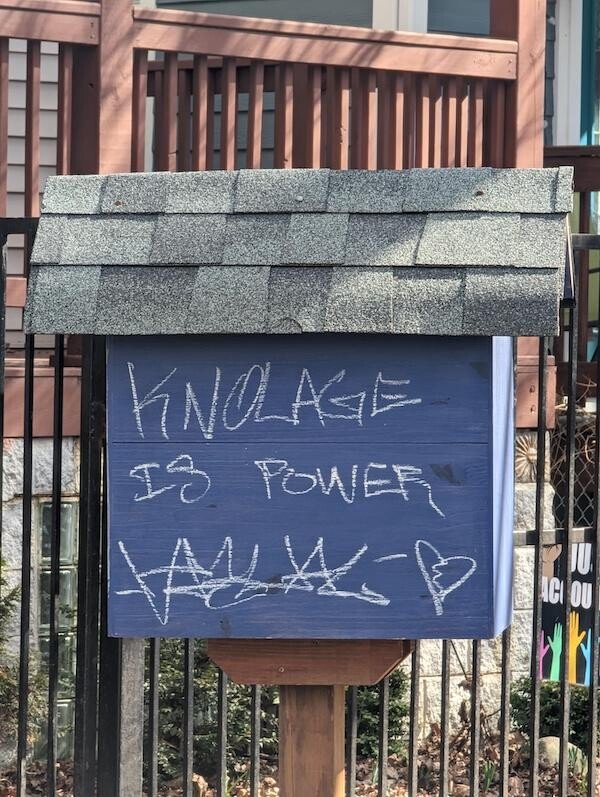 KNOLAGE
IS POWER
JU
ACC OU